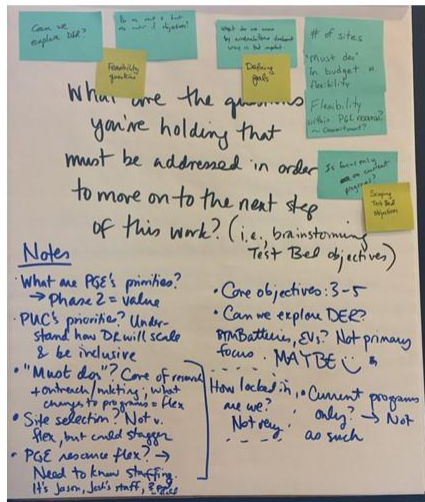 Can we
explore DER?
Feasibility
questions
Defining
goals
# of sites
"Must do"
in budget
flexibility
Flexibility
within PGE resources?
~ commitment?
Is focus only
on current
programs?
Scoping
Test Bed
objectives
What are the questions
you're holding that
must be addressed in order
to move on to the next step
of this work? (i.e., brainstorming
Test Bed objectives)
Notes
• What are PGE's priorities?
→ Phase 2 = value
• PUC's priorities? Under-
stand how DR will scale
& be inclusive
• "Must dos"? Core of research
+ outreach/mkting; what
changes to programs = flex
• Site selection? Not v.
flex, but could stagger
• PGE resource flex? →
Need to know staffing.
It's Jason, Josh's staff,
• Core objectives: 3-5
• Can we explore DER?
BTM Batteries, EVs? Not primary
focus. MAYBE
How locked in
are we?
Not very
• Current programs
only? → Not
as such